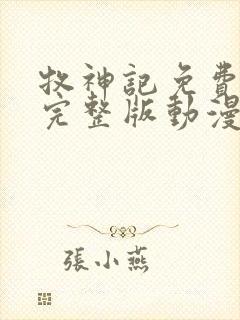 牧神記免費
完整版動漫
張小燕